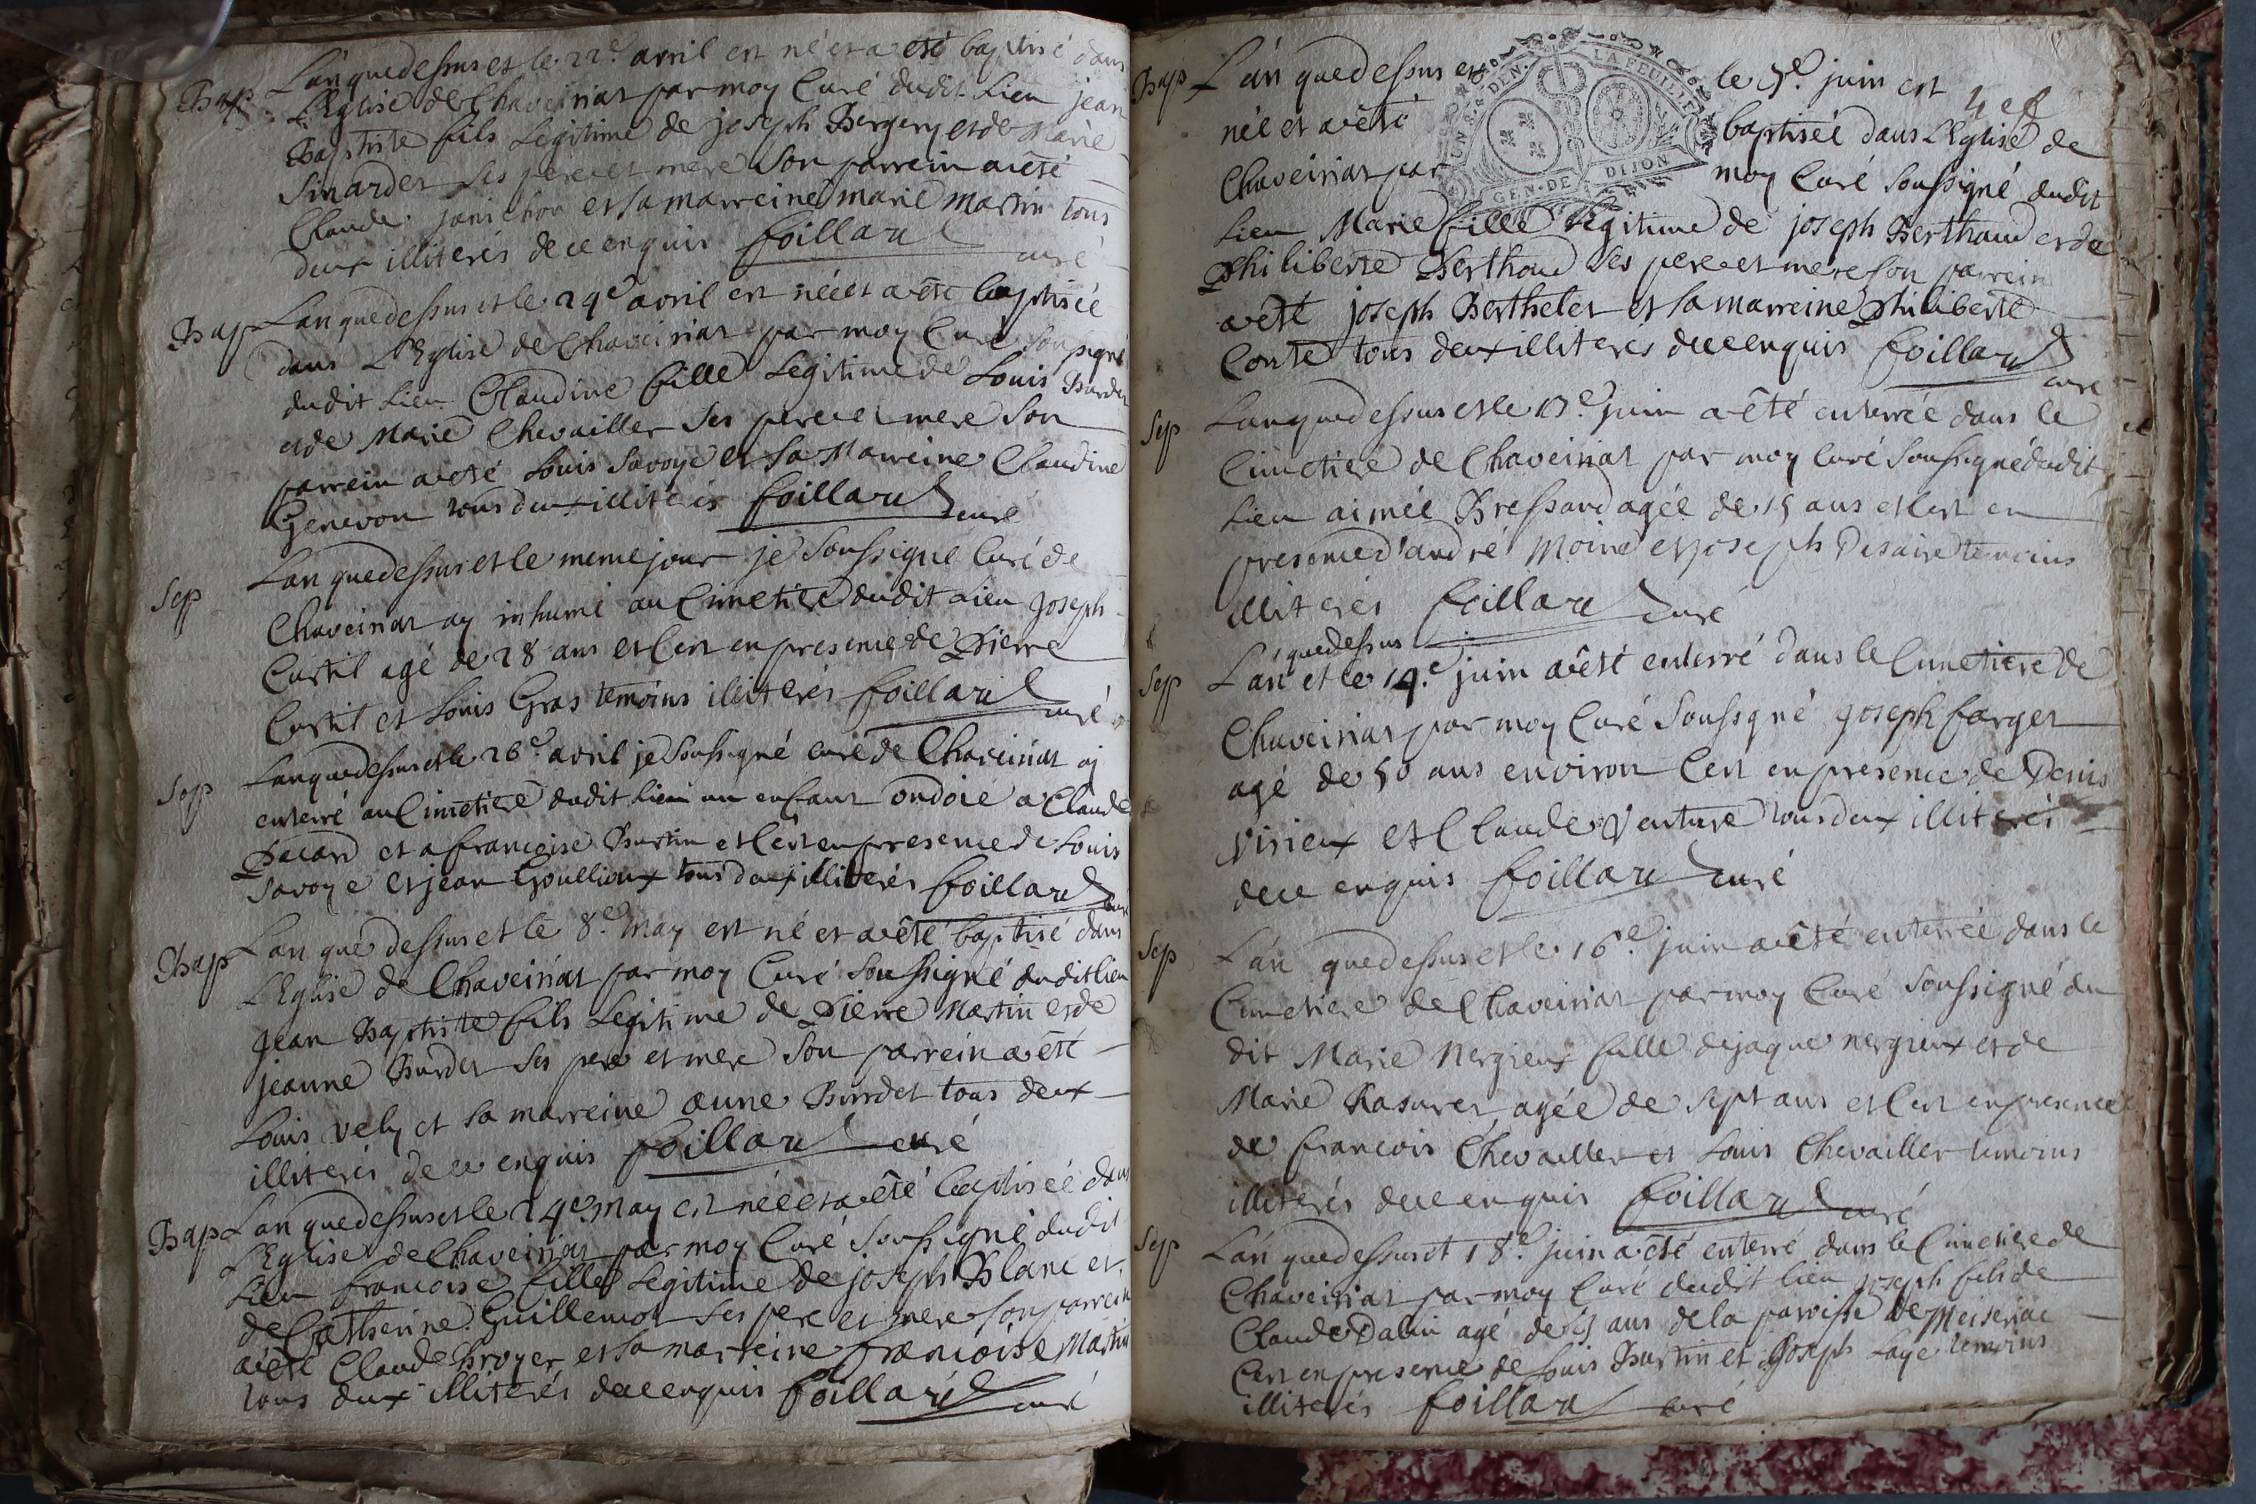 Bap L'an que dessus et le 22e avril est né et a eté baptisé dans
L'Eglise de Chaveiriat par moy Curé dudit Lieu jean
Baptiste fils Legitime de joseph Bergery et de Marie
Sinardet Ses pere et mere Son parrein a êté
Claude janichon et sa marreine marie martin tous
deux illiterés de ce enquis foillard curé
Bap L'an que dessus et le 24e avril est née et a êté baptisée
dans L'Eglise de Chaveiriat par moy Curé soussigné
dudit Lieu Claudine fille Legitime de Louis Burdet
et de Marie Chevailler Ses pere et mere Son
parrein a eté Louis Savoye et Sa Marreine Claudine
Genevon tous deux illiterés foillard curé
Sep L'an que dessus et le meme jour je Soussigné Curé de
Chaveiriat ay inhumé au Cimetiere dudit Lieu joseph
Curtil agé de 28 ans et C'est en presence de Pierre
Curtil et Louis Gras temoins illiterés foillard curé
Sep L'an que dessus et le 26e avril je Soussigné curé de Chaveiriat ay
enterré au Cimetiere dudit Lieu un enfant ondoié a Claude
Pacard et a francoise Burtin et C'est en presence de Louis
Savoye et jean Goullioux tous deux illiterés foillard curé
Bap L'an que dessus et le 8e may est né et a êté baptisé dans
L'Eglise de Chaveiriat par moy Curé Soussigné dudit lieu
Jean Baptiste fils Legitime de Pierre Martin et de
jeanne Burdet Ses pere et mere Son parrein a êté
Louis vely et sa marreine anne Burdet tous deux
illiterés de ce enquis foillard curé
Bap L'an que dessus et le 24e may est née et a êté baptisée dans
L'Eglise de Chaveiriat par moy Curé Soussigné dudit
Lieu francoise fille Legitime de joseph Blanc et
de Catherine Guillemot Ses pere et mere Son parrein
a êté Claude broyer et Sa marreine francoise Martin
tous deux illiterés de ce enquis foillard curé
4e f
GEN. DE DIJON
LA FEUILLE
Bap L'an que dessus et le 5e juin est
née et a êté baptisée dans L'Eglise de
Chaveiriat par moy Curé Soussigné dudit
Lieu Marie fille Legitime de joseph Berthoud et de
Philiberte Berthoud Ses pere et mere Son parrein
a êté joseph Berthelet et sa marreine Philiberte
Conte tous deux illiterés de ce enquis foillard curé
Sep L'an que dessus et le 13e juin a êté enterrée dans le
Cimetiere de Chaveiriat par moy Curé Soussigné dudit
Lieu aimée Bressand agée de 15 ans et C'est en
presence d'andré Moine et joseph Desaire temoins
illiterés foillard curé
que dessus
Sep L'an et le 14e juin a êté enterré dans le Cimetiere de
Chaveiriat par moy Curé Soussigné joseph farget
agé de 50 ans environ C'est en presence de Denis
Virieux et Claude Venture tous deux illiterés
de ce enquis foillard curé
Sep L'an que dessus et le 16e juin a êté enterrée dans le
Cimetiere de Chaveiriat par moy Curé Soussigné du
dit Marie Nergieux fille de jaque nergieux et de
Marie Rasurel agée de Sept ans et C'est en presence
de francois Chevailler et Louis Chevailler temoins
illiterés de ce enquis foillard curé
Sep L'an que dessus et 18e juin a êté enterré dans le Cimetiere de
Chaveiriat par moy Curé dudit lieu joseph fils de
Claude Dalin agé de ans de la paroisse de Meiseriac
C'est en presence de Louis Burtin et joseph Laye temoins
illiterés foillard curé